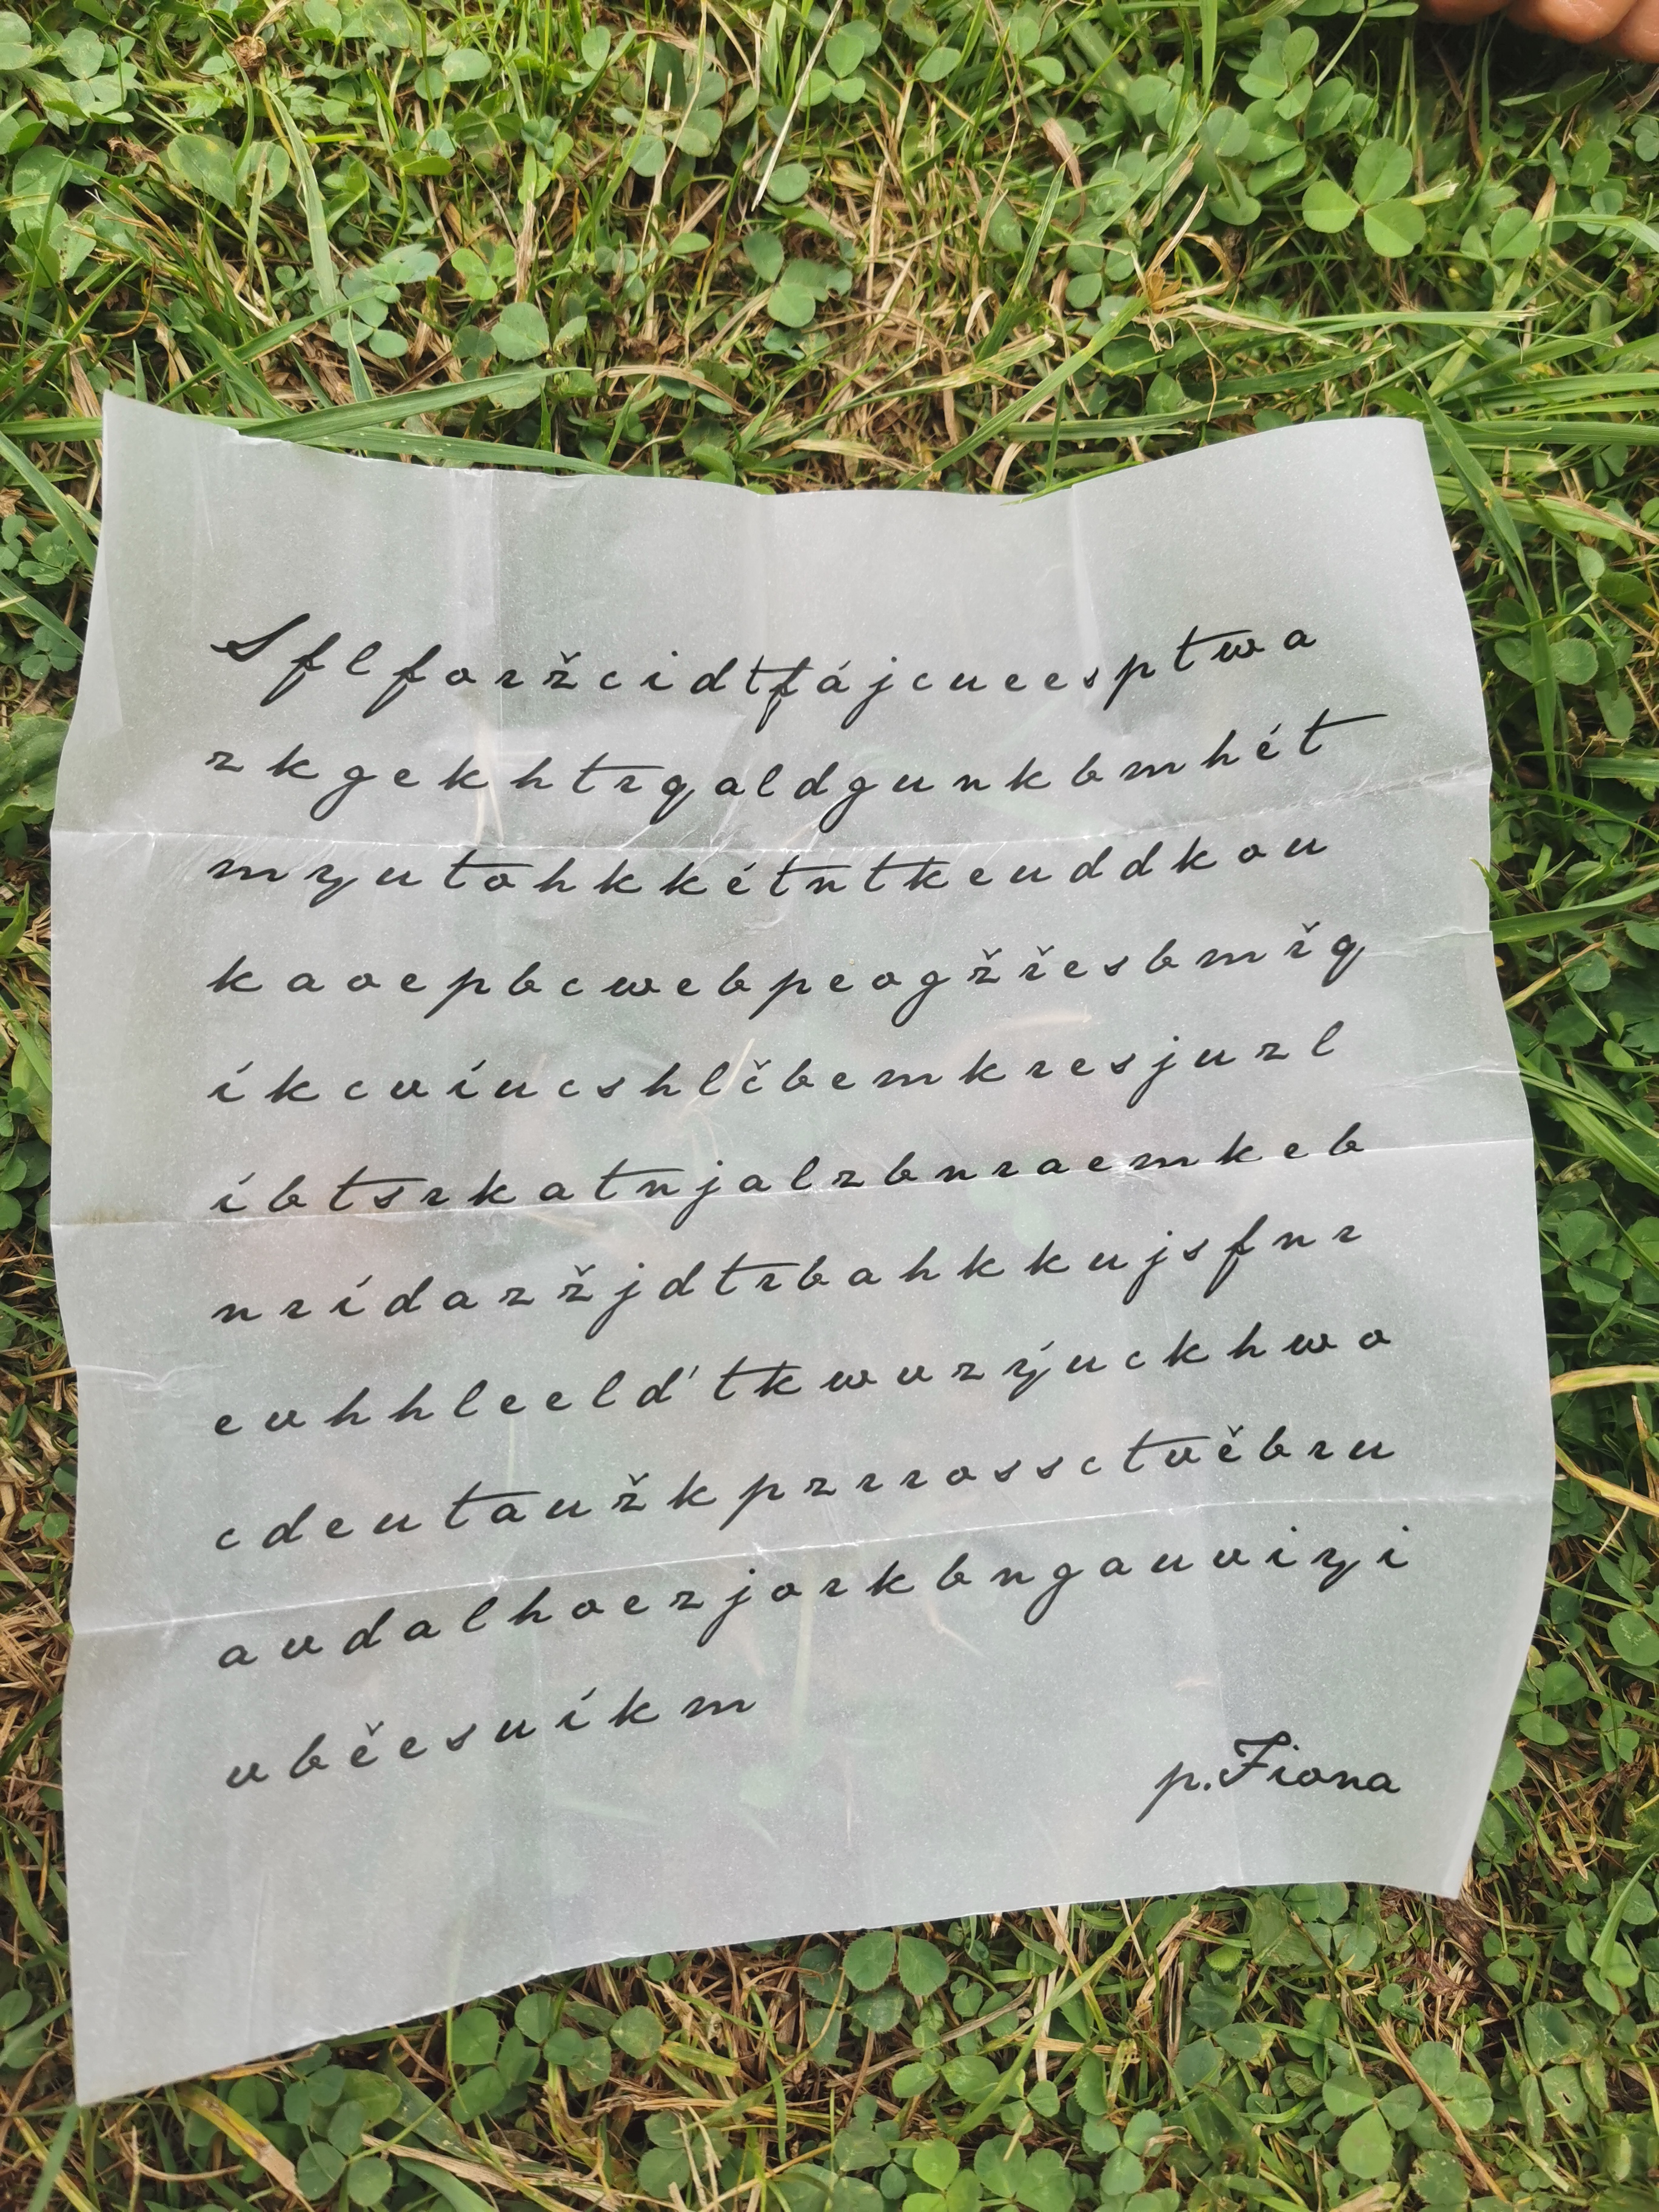 S f l f o r ž c i d t f á j c u e e s p t w a
z k g e k h t r q a l d g u n k b m h é t
m y u t o h k k é t n t k e u d d k o u
k a o e p b c w e b p e o g ž ř e s b m ř q
í k c v í u c s h l č b e m k r e s j u z l
í b t s r k a t n j a l z b n r a e m k e b
n r í d a z ž j d t r b a h k k u j s f n r
e v h h l e e l ď t k w v z ý u c k h w o
c d e u t a u ž k p z r r o s s c t v ě b r u
a v d a l h o e z j o r k b n g a u v i y i
v b ě e s u í k m
p. Fiona